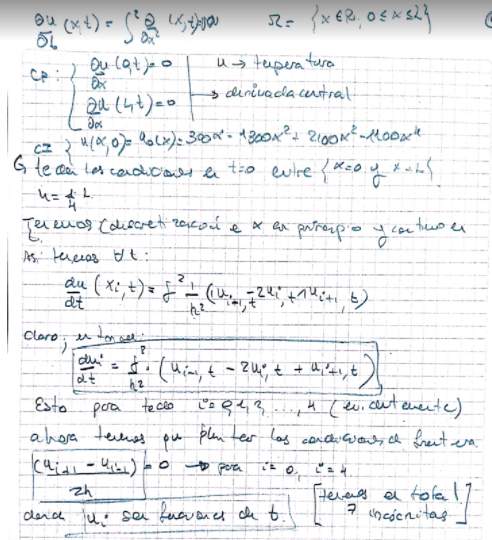 ∂u/∂t (x,t) = f² ∂/∂x² (x,t) Ω = {x ∈ R, 0 ≤ x ≤ L}
CF: { ∂u/∂x (0,t) = 0 u → temperatura
∂u/∂x (L,t) = 0 → derivada central
CI } u(x,0) = u₀(x) = 300x - 1300x² + 2100x³ - 1100x⁴
las condiciones en t=0 entre {x=0 y x=L}
h = 1/4 L
Tenemos (discretización e x en principio y continuo en t.
Así tenemos ∀t:
du/dt (xᵢ,t) = f² 1/h² (1uᵢ₋₁,t - 2uᵢ,t + 1uᵢ₊₁,t)
claro, entonces:
duᵢ/dt = f²/h² · (uᵢ₋₁,t - 2uᵢ,t + uᵢ₊₁,t)
Esto para todo i = 0,1,2,...,4 (evidentemente)
ahora tenemos que plantear las condiciones de frontera
(uᵢ₊₁ - uᵢ₋₁)/2h = 0 → para i=0, i=4
donde uᵢ son funciones de t. [tenemos en total 7 incógnitas]